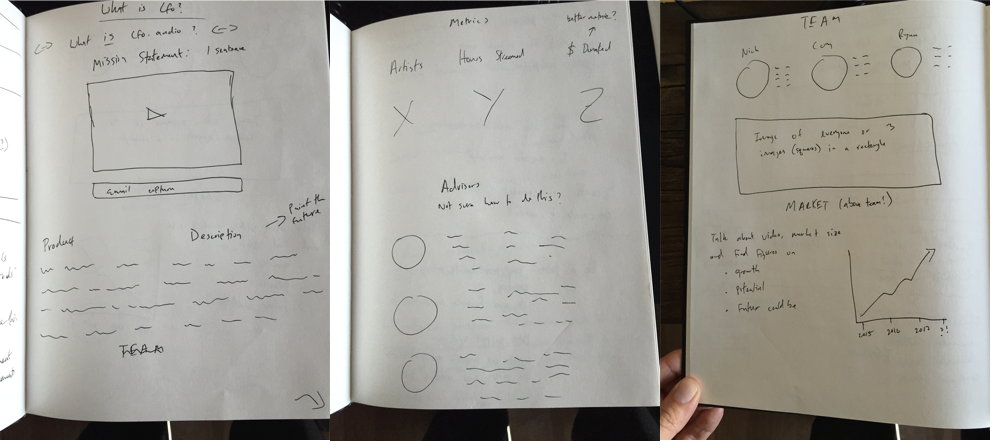 What is Cfo?
<-> What is Cfo.audio? <->
Mission Statement: 1 sentence
email capture
Paint the
future
Product
Description
TEAM
Metrics
better metric?
Artists
Hours Streamed
$ Donated
X
Y
Z
Advisors
Not sure how to do this?
TEAM
Nick
Cam
Ryan
Image of everyone or 3
images (squares) in a rectangle
MARKET (above team!)
Talk about video, market size
and find figures on
• growth
• potential
• Future could be
2015
2016
2017
?!